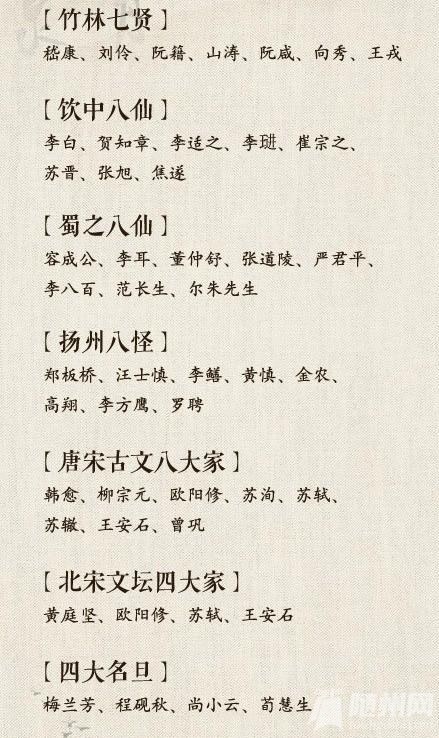 【竹林七贤】
嵇康、刘伶、阮籍、山涛、阮咸、向秀、王戎
【饮中八仙】
李白、贺知章、李适之、李琎、崔宗之、
苏晋、张旭、焦遂
【蜀之八仙】
容成公、李耳、董仲舒、张道陵、严君平、
李八百、范长生、尔朱先生
【扬州八怪】
郑板桥、汪士慎、李鱓、黄慎、金农、
高翔、李方鹰、罗聘
【唐宋古文八大家】
韩愈、柳宗元、欧阳修、苏洵、苏轼、
苏辙、王安石、曾巩
【北宋文坛四大家】
黄庭坚、欧阳修、苏轼、王安石
【四大名旦】
梅兰芳、程砚秋、尚小云、荀慧生
随州网